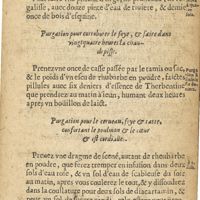 galisse, auec douze pinte d'eau de riuiere, & demie
once de bois d'esquine.
Purgation pour corroborer le foye, & faire dans
vingtquatre heures la chau-
de pisse.
Prenez vne once de casse passée par le tamis ou sac,
& le poids d'vn escu de rhubarbe en poudre, faictes
pillules auec six deniers d'essence de Therbentine
que prendrez au matin à ieun, humant deux heures
apres vn boüillon de laict.
Purgation pour le cerueau, foye & ratte,
confortant le poulmon & le cœur
& est cordialle.
Prenez vne dragme de sené, autant de rheubarbe
en poudre, que ferez tremper en infusion dans deux
sols d'eau rose, & vn sol d'eau de scabieuse du soir
au matin, apres vous coulerez le tout, & y dissoudrez
dans la coullature pour deux sols de diacartami, &